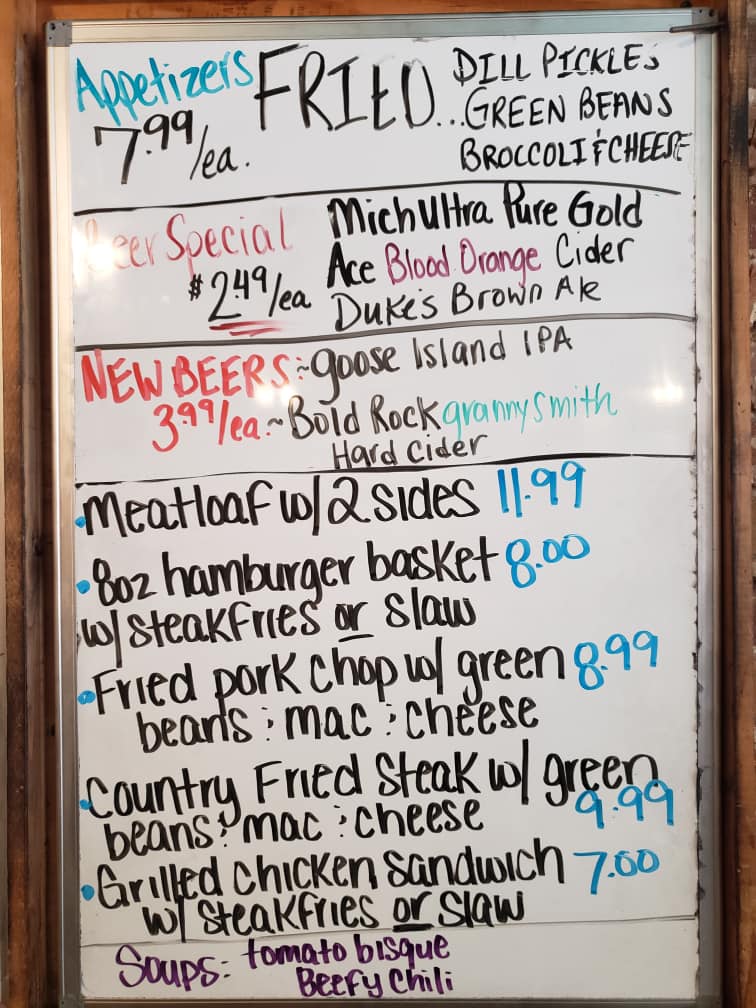 Appetizers FRIED... DILL PICKLES
7.99/ea. GREEN BEANS
BROCCOLI & CHEESE
Beer Special Mich Ultra Pure Gold
$2.49/ea Ace Blood Orange Cider
Duke's Brown Ale
NEW BEERS: ~Goose Island IPA
3.99/ea. ~Bold Rock granny smith
Hard Cider
• Meatloaf w/ 2 sides 11.99
• 8oz hamburger basket 8.00
w/ steakfries or slaw
• Fried pork chop w/ green 8.99
beans & mac & cheese
• Country Fried Steak w/ green
beans & mac & cheese 9.99
• Grilled chicken sandwich 7.00
w/ steakfries or slaw
Soups: tomato bisque
Beefy Chili